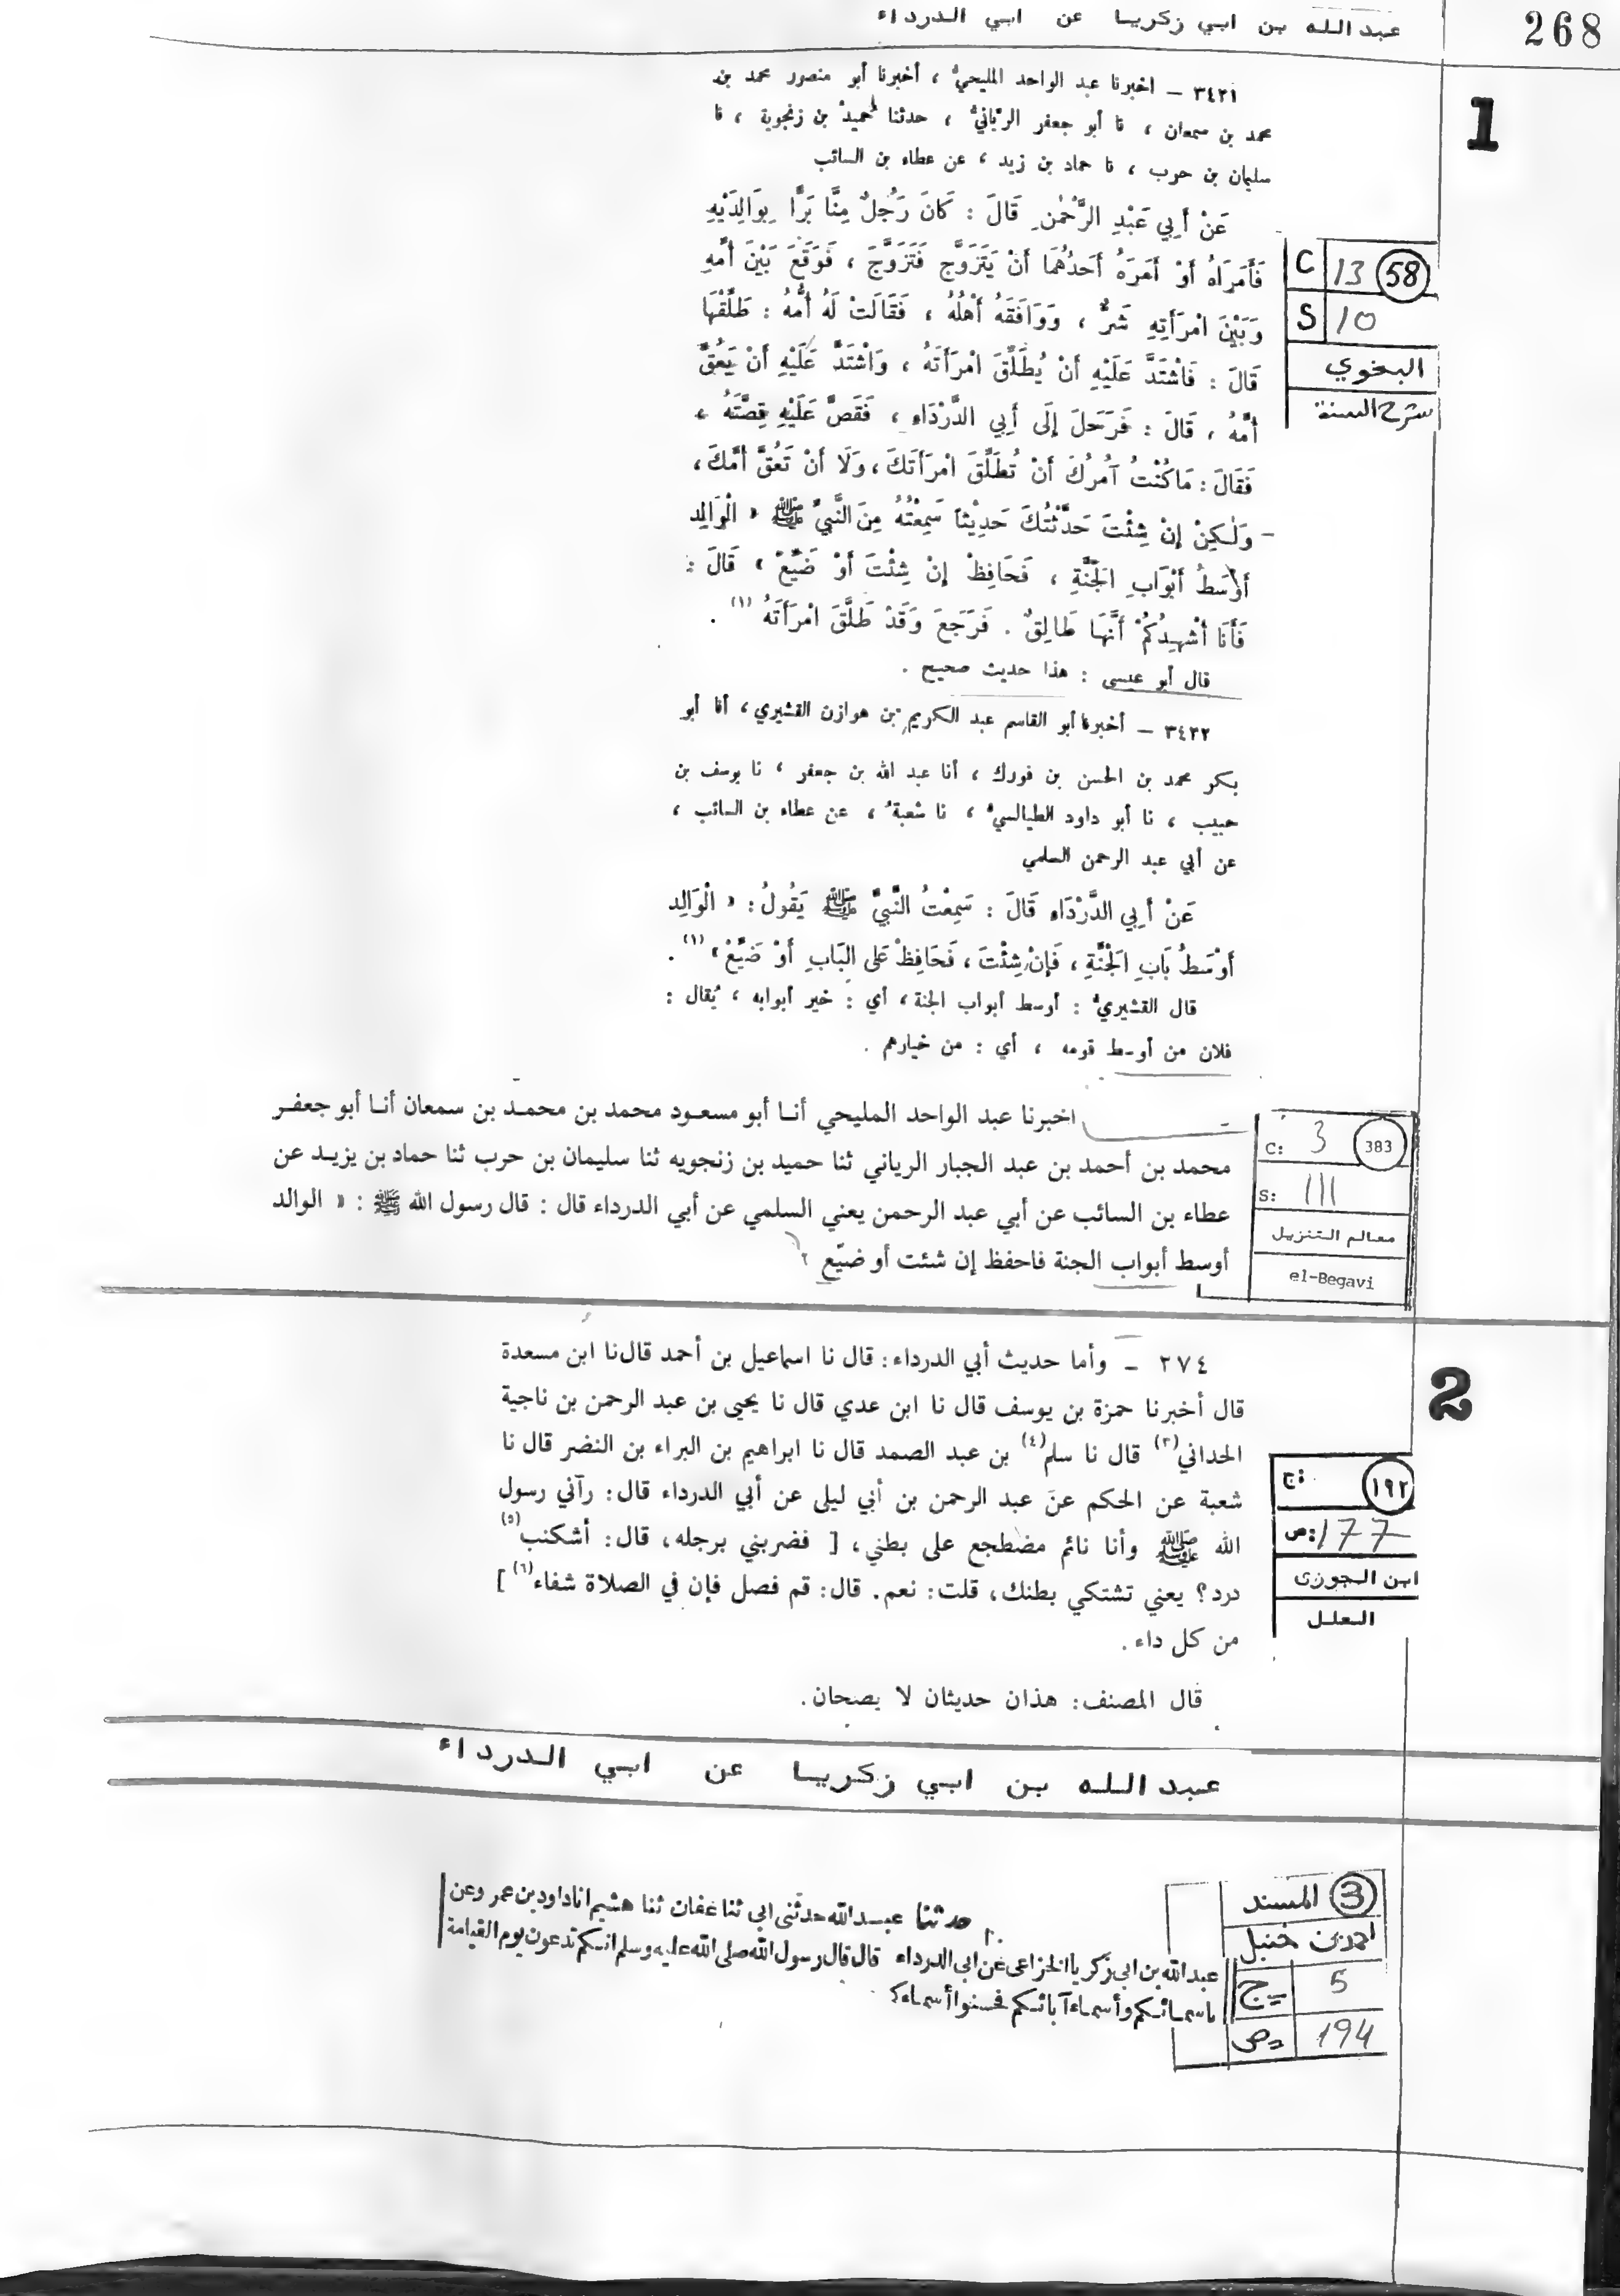 268
عبد الله بن ابي زكريا عن ابي الدرداء
1
٣٤٢١ – اخبرنا عبد الواحد المليحيُّ ، أخبرنا أبو منصور محمد بن
محمد بن سمعان ، نا أبو جعفر الرّيّانيُّ ، حدثنا حُميدُ بن زنجوية ، نا
سليمان بن حرب ، نا حماد بن زيد ، عن عطاء بن السائب
عَنْ أَبِي عَبْدِ الرَّحْمٰنِ قَالَ : كَانَ رَجُلٌ مِنَّا بَرًّا بِوَالِدَيْهِ
فَأَمَرَاهُ أَوْ أَمَرَهُ أَحَدُهُمَا أَنْ يَتَزَوَّجَ فَتَزَوَّجَ ، فَوَقَعَ بَيْنَ أُمِّهِ
وَبَيْنَ امْرَأَتِهِ شَرٌّ ، وَوَافَقَهُ أَهْلُهُ ، فَقَالَتْ لَهُ أُمُّهُ : طَلِّقْهَا
قَالَ : فَاشْتَدَّ عَلَيْهِ أَنْ يُطَلِّقَ امْرَأَتَهُ ، وَاشْتَدَّ عَلَيْهِ أَنْ يَعُقَّ
أُمَّهُ ، قَالَ : فَرَحَلَ إِلَى أَبِي الدَّرْدَاءِ ، فَقَصَّ عَلَيْهِ قِصَّتَهُ ،
فَقَالَ : مَا كُنْتُ آمُرُكَ أَنْ تُطَلِّقَ امْرَأَتَكَ ، وَلَا أَنْ تَعُقَّ أُمَّكَ ،
– وَلٰكِنْ إِنْ شِئْتَ حَدَّثْتُكَ حَدِيْثاً سَمِعْتُهُ مِنَ النَّبِيِّ ﷺ « الْوَالِد
أَوْسَطُ أَبْوَابِ الْجَنَّةِ ، فَحَافِظْ إِنْ شِئْتَ أَوْ ضَيِّعْ » قَالَ :
فَأَنَا أُشْهِدُكُمْ أَنَّهَا طَالِقٌ . فَرَجَعَ وَقَدْ طَلَّقَ امْرَأَتَهُ (١) .
قال أبو عيسى : هذا حديث صحيح .
C 13 58
S 10
البغوي
شرح السنة
٣٤٢٢ – أخبرنا أبو القاسم عبد الكريم بن هوازن القشيري ، أنا أبو
بكر محمد بن الحسن بن فورك ، أنا عبد الله بن جعفر ، نا يوسف بن
حبيب ، نا أبو داود الطيالسيُّ ، نا شعبةُ ، عن عطاء بن السائب ،
عن أبي عبد الرحمن السلمي
عَنْ أَبِي الدَّرْدَاءِ قَالَ : سَمِعْتُ النَّبِيَّ ﷺ يَقُولُ : « الْوَالِد
أَوْسَطُ بَابِ الْجَنَّةِ ، فَإِنْ شِئْتَ ، فَحَافِظْ عَلى البَابِ أَوْ ضَيِّعْ » (١) .
قال القشيريُّ : أوسط أبواب الجنة ، أي : خير أبوابه ، يُقال :
فلان من أوسط قومه ، أي : من خيارهم .
اخبرنا عبد الواحد المليحي أنا أبو مسعود محمد بن محمد بن سمعان أنا أبو جعفر
محمد بن أحمد بن عبد الجبار الرياني ثنا حميد بن زنجويه ثنا سليمان بن حرب ثنا حماد بن يزيد عن
عطاء بن السائب عن أبي عبد الرحمن يعني السلمي عن أبي الدرداء قال : قال رسول الله ﷺ : « الوالد
أوسط أبواب الجنة فاحفظ إن شئت أو ضيّع »
C: 3 383
S: 111
معالم التنزيل
el-Begavi
2
٢٧٤ – وأما حديث أبي الدرداء : قال نا اسماعيل بن أحمد قال نا ابن مسعدة
قال أخبرنا حمزة بن يوسف قال نا ابن عدي قال نا يحيى بن عبد الرحمن بن ناجية
الحداني(٣) قال نا سلم(٤) بن عبد الصمد قال نا ابراهيم بن البراء بن النضر قال نا
شعبة عن الحكم عن عبد الرحمن بن أبي ليلى عن أبي الدرداء قال : رآني رسول
الله ﷺ وأنا نائم مضطجع على بطني ، [ فضربني برجله ، قال : أشكنب(٥)
درد ؟ يعني تشتكي بطنك ، قلت : نعم . قال : قم فصل فإن في الصلاة شفاء(٦) ]
من كل داء .
قال المصنف : هذان حديثان لا يصحان .
ج: ١٩٢
ص: 177
ابن الجوزى
العلل
عبد الله بن ابي زكريا عن ابي الدرداء
حدثنا عبد الله حدثنى ابى ثنا عفان ثنا هشيم انا داود بن عمر وعن
عبد الله بن ابى زكريا الخزاعى عن ابى الدرداء قال قال رسول الله صلى الله عليه وسلم انكم تدعون يوم القيامة
باسمائكم وأسماء آبائكم فحسنوا أسماءكم
3 المسند
احمد بن حنبل
ج 5
ص 194